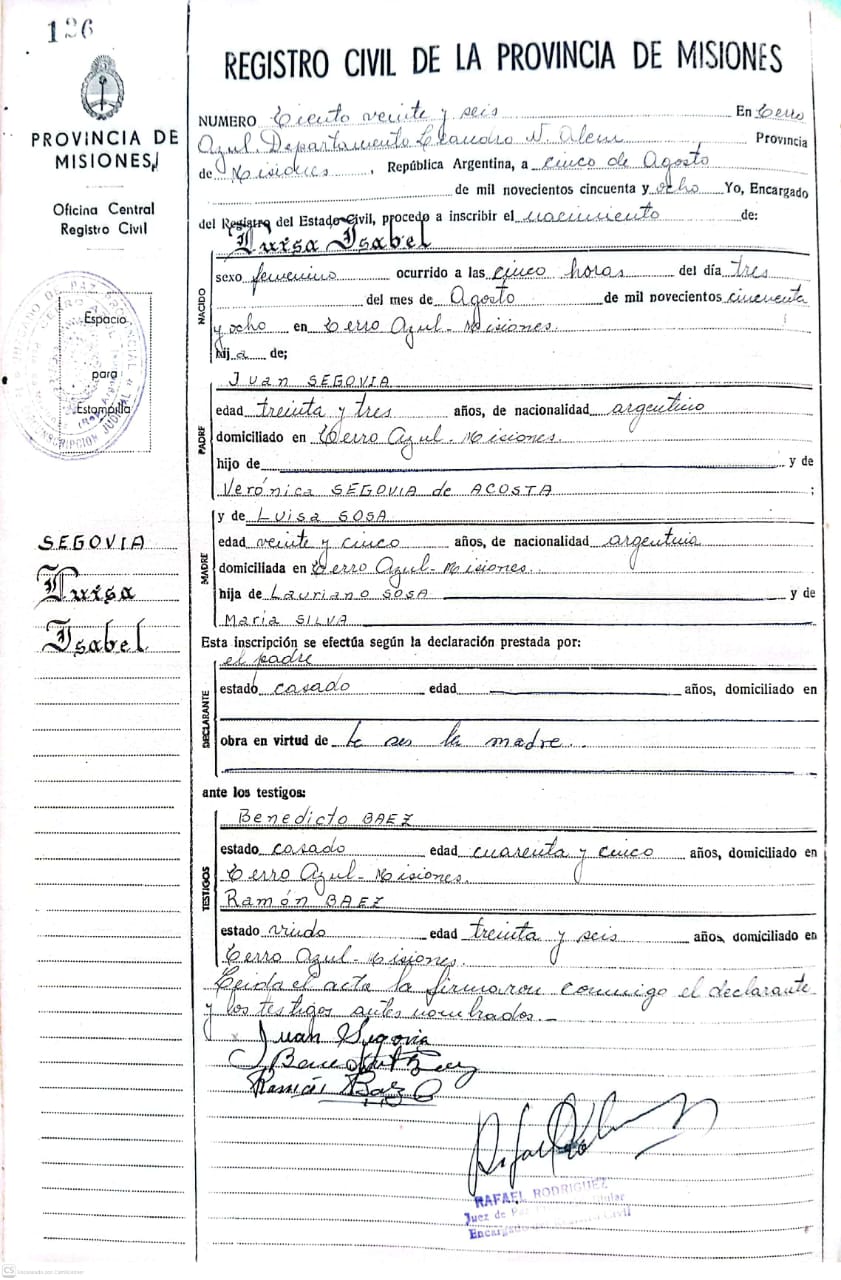 126
PROVINCIA DE
MISIONES
Oficina Central
Registro Civil
Espacio
para
Estampilla
SEGOVIA
Luisa
Isabel
REGISTRO CIVIL DE LA PROVINCIA DE MISIONES
NUMERO Ciento veinte y seis En Cerro
Azul. Departamento Leandro N. Alem Provincia
de Misiones, República Argentina, a cinco de Agosto
de mil novecientos cincuenta y ocho Yo, Encargado
del Registro del Estado Civil, procedo a inscribir el nacimiento de:
Luisa Isabel
NACIDO
sexo femenino ocurrido a las cinco horas del día tres
del mes de Agosto de mil novecientos cincuenta
y ocho en Cerro Azul - Misiones.
hija de;
PADRE
Juan SEGOVIA
edad treinta y tres años, de nacionalidad argentino
domiciliado en Cerro Azul - Misiones.
hijo de y de
Verónica SEGOVIA de ACOSTA ;
MADRE
y de Luisa SOSA
edad veinte y cinco años, de nacionalidad argentina
domiciliada en Cerro Azul - Misiones.
hija de Lauriano SOSA y de
María SILVA
Esta inscripción se efectúa según la declaración prestada por:
DECLARANTE
el padre
estado casado edad años, domiciliado en
obra en virtud de la madre.
ante los testigos:
TESTIGOS
Benedicto BAEZ
estado casado edad cuarenta y cinco años, domiciliado en
Cerro Azul - Misiones.
Ramón BAEZ
estado viudo edad treinta y seis años, domiciliado en
Cerro Azul - Misiones.
Leída el acta la firmaron conmigo el declarante
y los testigos antes nombrados.-
Juan Segovia
Ramón Baez
RAFAEL RODRIGUEZ
Juez de Paz Titular
Encargado del Registro Civil
CS Escaneado con CamScanner